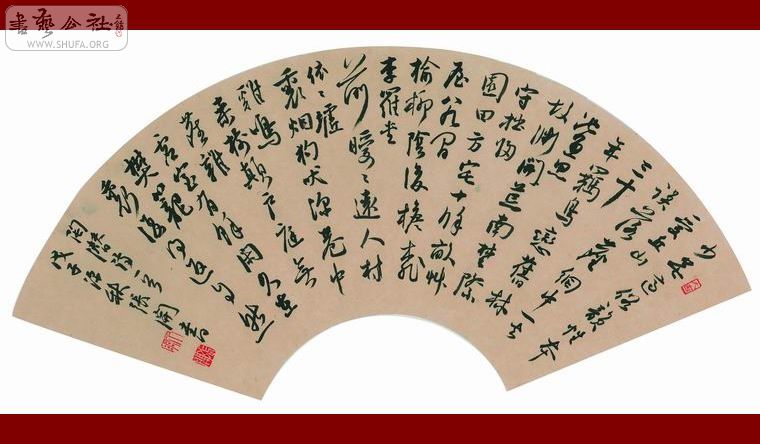 少無適俗韻性本
愛丘山
誤落塵網中一去
三十年
羈鳥戀舊林
池魚思
故淵開荒南野際
守拙歸
園田方宅十餘畝草
屋八九間
榆柳蔭後簷桃
李羅堂
前曖曖遠人村
依依墟
里烟狗吠深巷中
雞鳴
桑樹顛户庭無
塵雜
虛室有餘閒久在
樊籠裏
復得返自然
陶潛詩一首
戊子
書
書藝公社
WWW.SHUFA.ORG